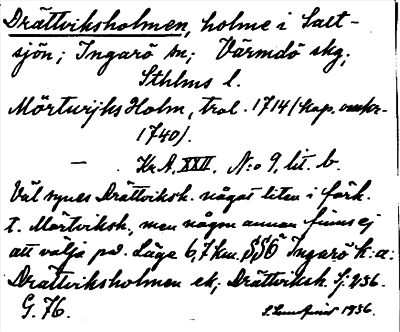 Drättviksholmen, holme i Salt-
sjön; Ingarö sn; Värmdö skg;
Sthlms l.
Mörtwijks Holm, trol. 1714 (kop. omkr.
1740).
— Kr.A. XXII. N:o 9, lit. b.
Väl synes Drättviksh. något liten i förh.
t. Mörtviksh., men någon annan finns ej
att välja på. Läge 6,7 km. SSÖ Ingarö k:a:
Drättviksholmen ek; Drättviksh. Sj. 936.
G. 76.
1936.